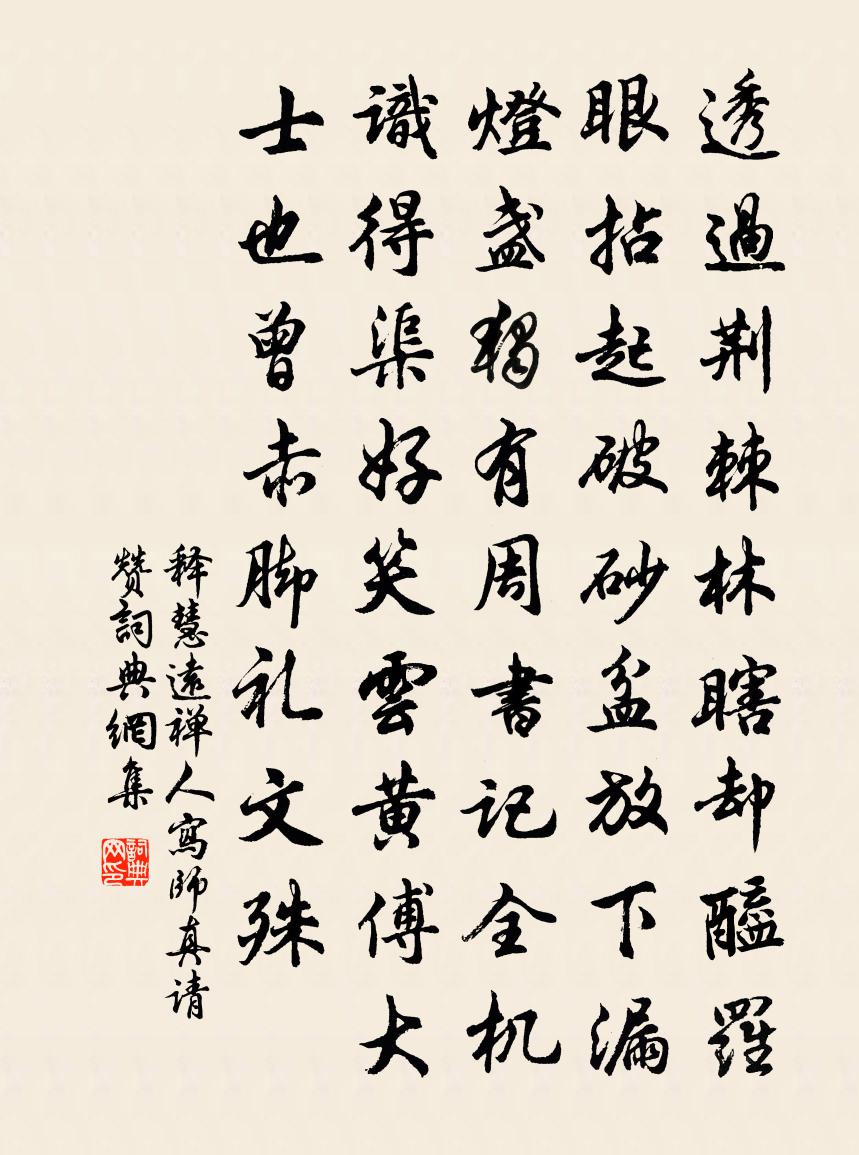 透過荆棘林瞎却醯羅
眼拈起破砂盆放下漏
燈盞獨有周書記全机
識得渠好笑雲黄傅大
士也曾赤脚礼文殊
释慧遠禅人寫師真请
赞詞典網集
詞典
网印